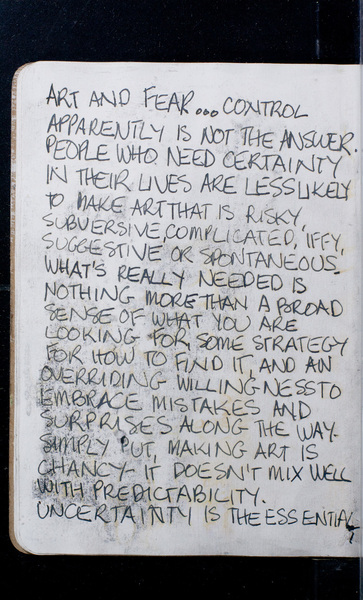 ART AND FEAR... CONTROL
APPARENTLY IS NOT THE ANSWER.
PEOPLE WHO NEED CERTAINTY
IN THEIR LIVES ARE LESS LIKELY
TO MAKE ART THAT IS RISKY,
SUBVERSIVE, COMPLICATED, IFFY,
SUGGESTIVE OR SPONTANEOUS.
WHAT'S REALLY NEEDED IS
NOTHING MORE THAN A BROAD
SENSE OF WHAT YOU ARE
LOOKING FOR SOME STRATEGY
FOR HOW TO FIND IT, AND AN
OVERRIDING WILLINGNESS TO
EMBRACE MISTAKES AND
SURPRISES ALONG THE WAY.
SIMPLY PUT, MAKING ART IS
CHANCY- IT DOESN'T MIX WELL
WITH PREDICTABILITY.
UNCERTAINTY IS THE ESSENTIAL